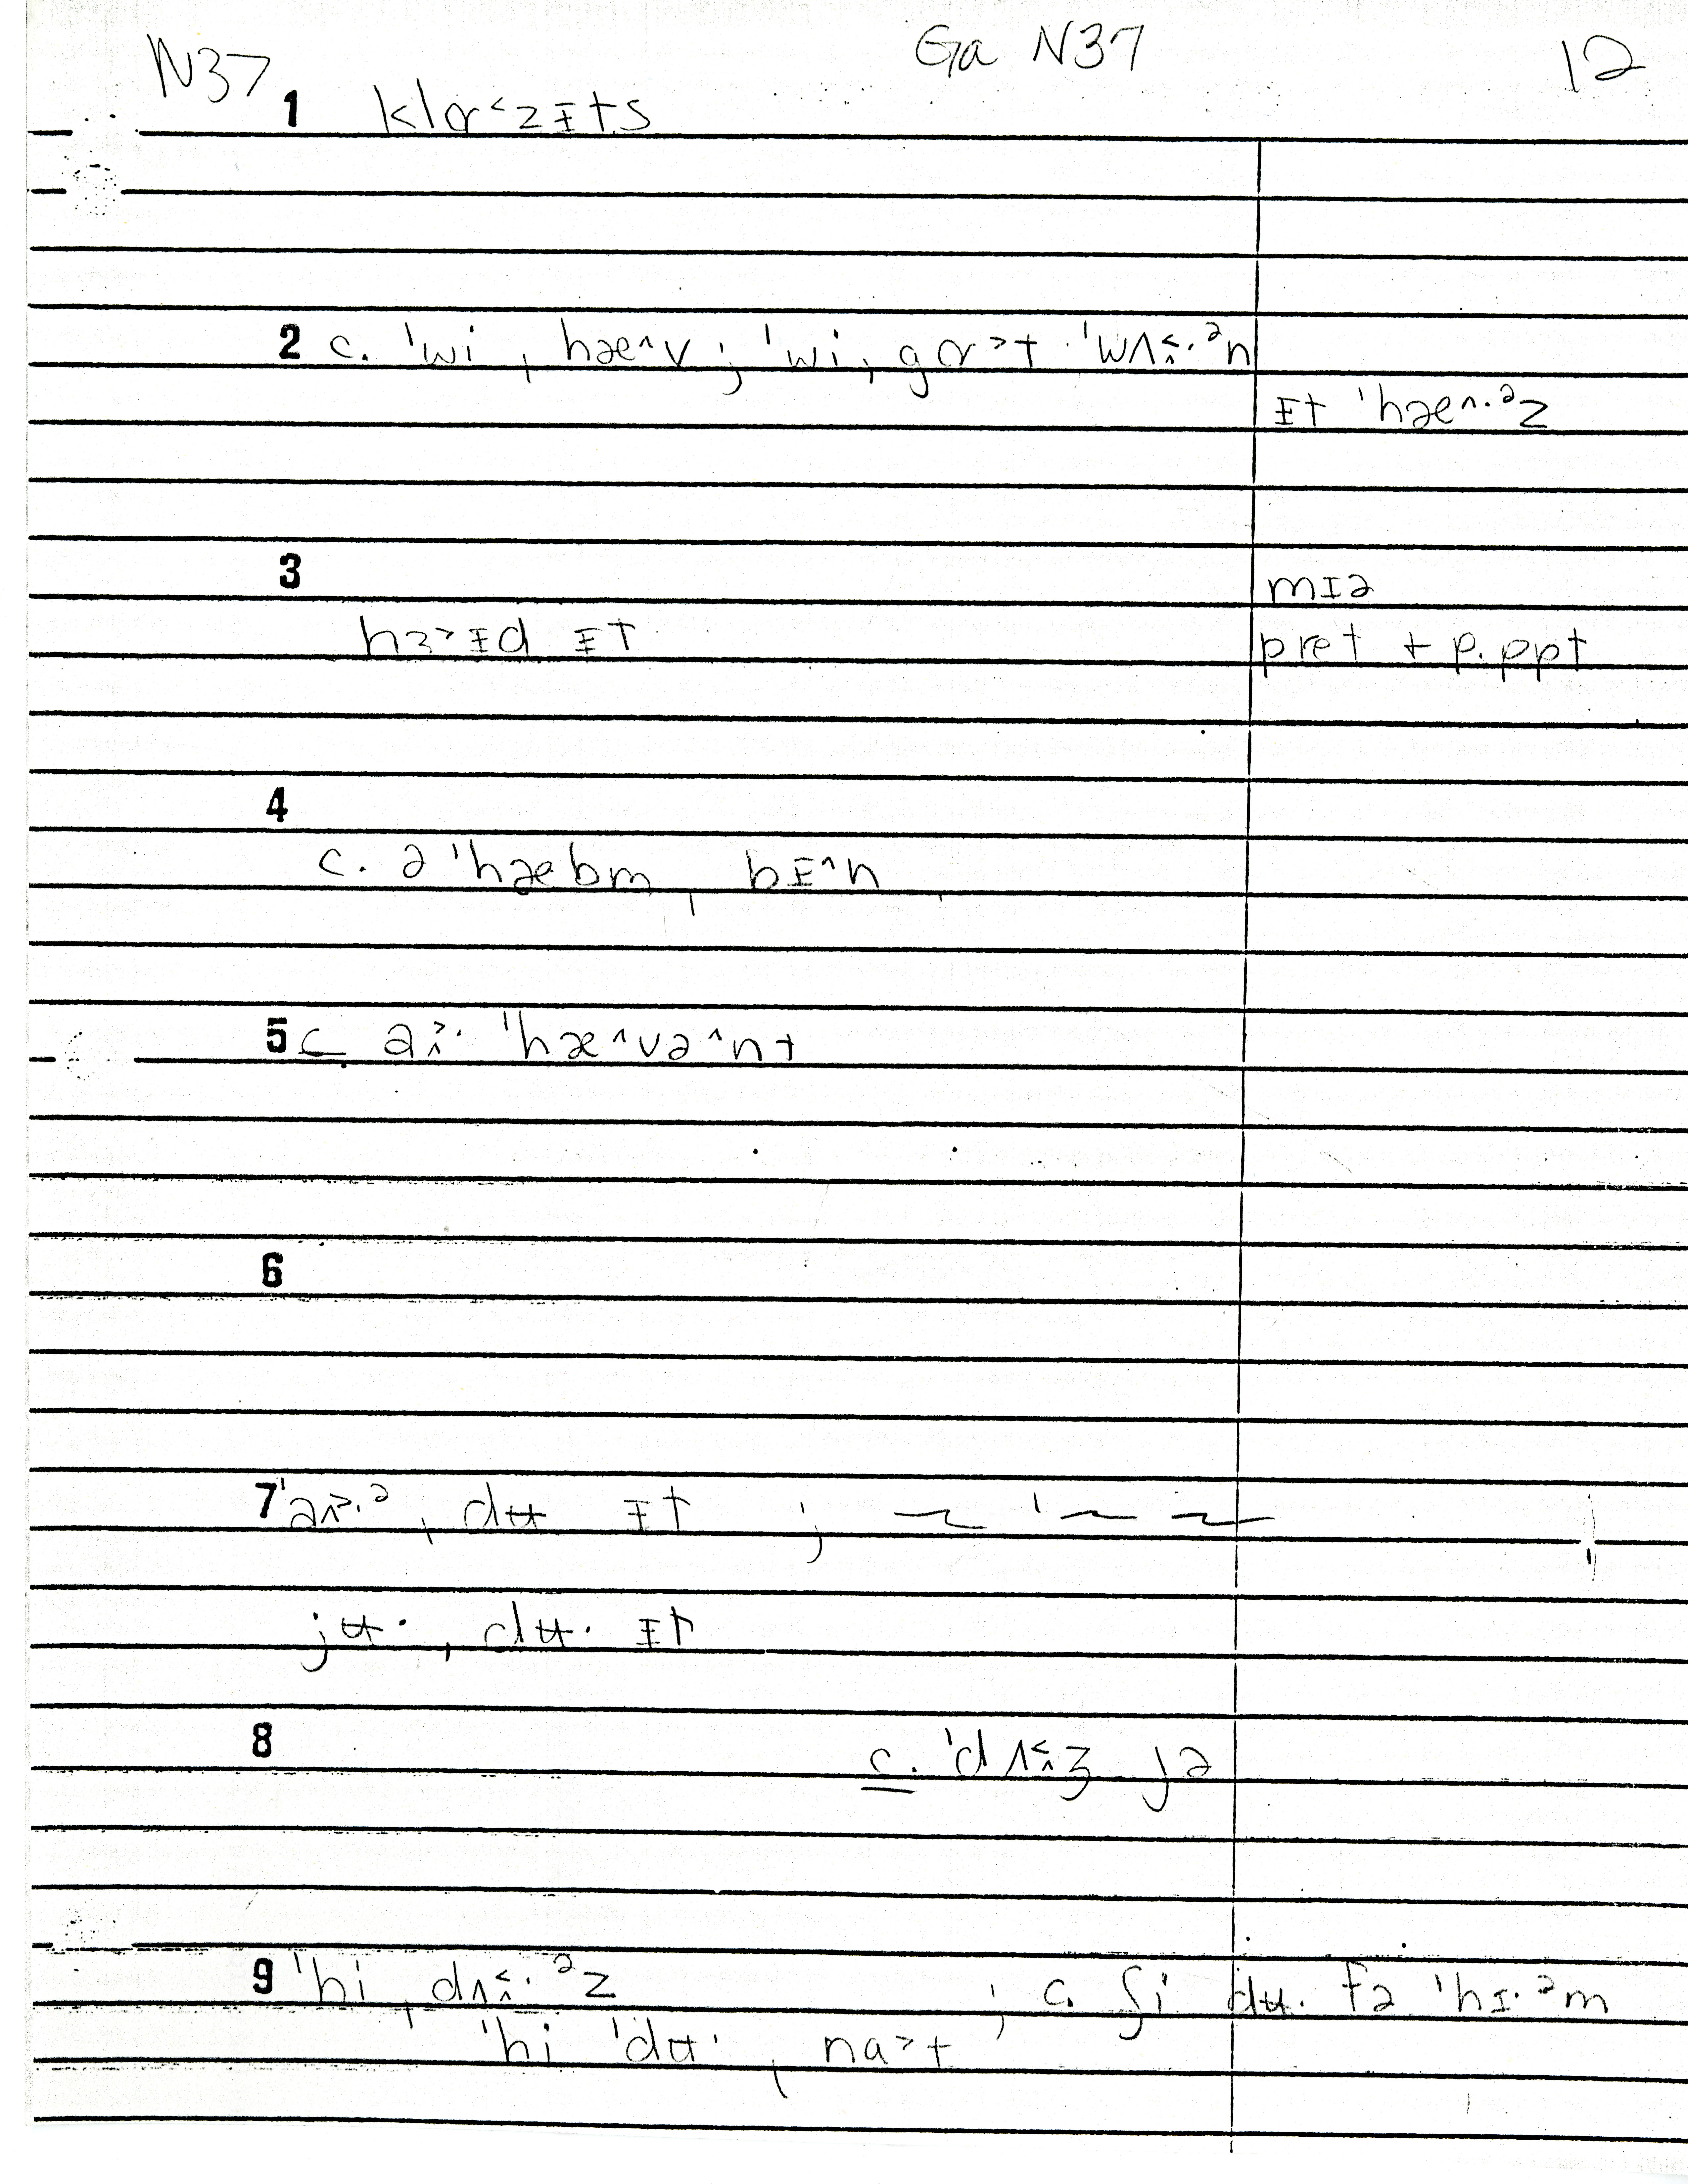 N37 Ga N37 12
1 klɒ˂zᵻts
2 c. ˈwi ˌhæ^v ; ˈwi ˌgɒ˃t ˈwʌɪ̭˂·ᵊn
ᵻt ˈhæ^·ᵊz
3 mɪə
hɜ˃ᵻd ᵻt pret + p. ppt
4
c. ə ˈhæbm ˌbᵻ^n
5 c aɪ̭˃· ˈhæ^və^nt
6
7 ˈaɪ˃·ᵊ ˌdʉ ᵻt ; ~ ˈ~ ~
jʉ· ˌdʉ· ᵻt
8 c. ˈdʌɪ̭˂ʒ jə
9 ˈhi ˌdʌɪ̭˂·ᵊz ; c. ʃi dʉ· fə ˈhɪ·ᵊm
ˈhi ˈdʉ· ˌna˃t